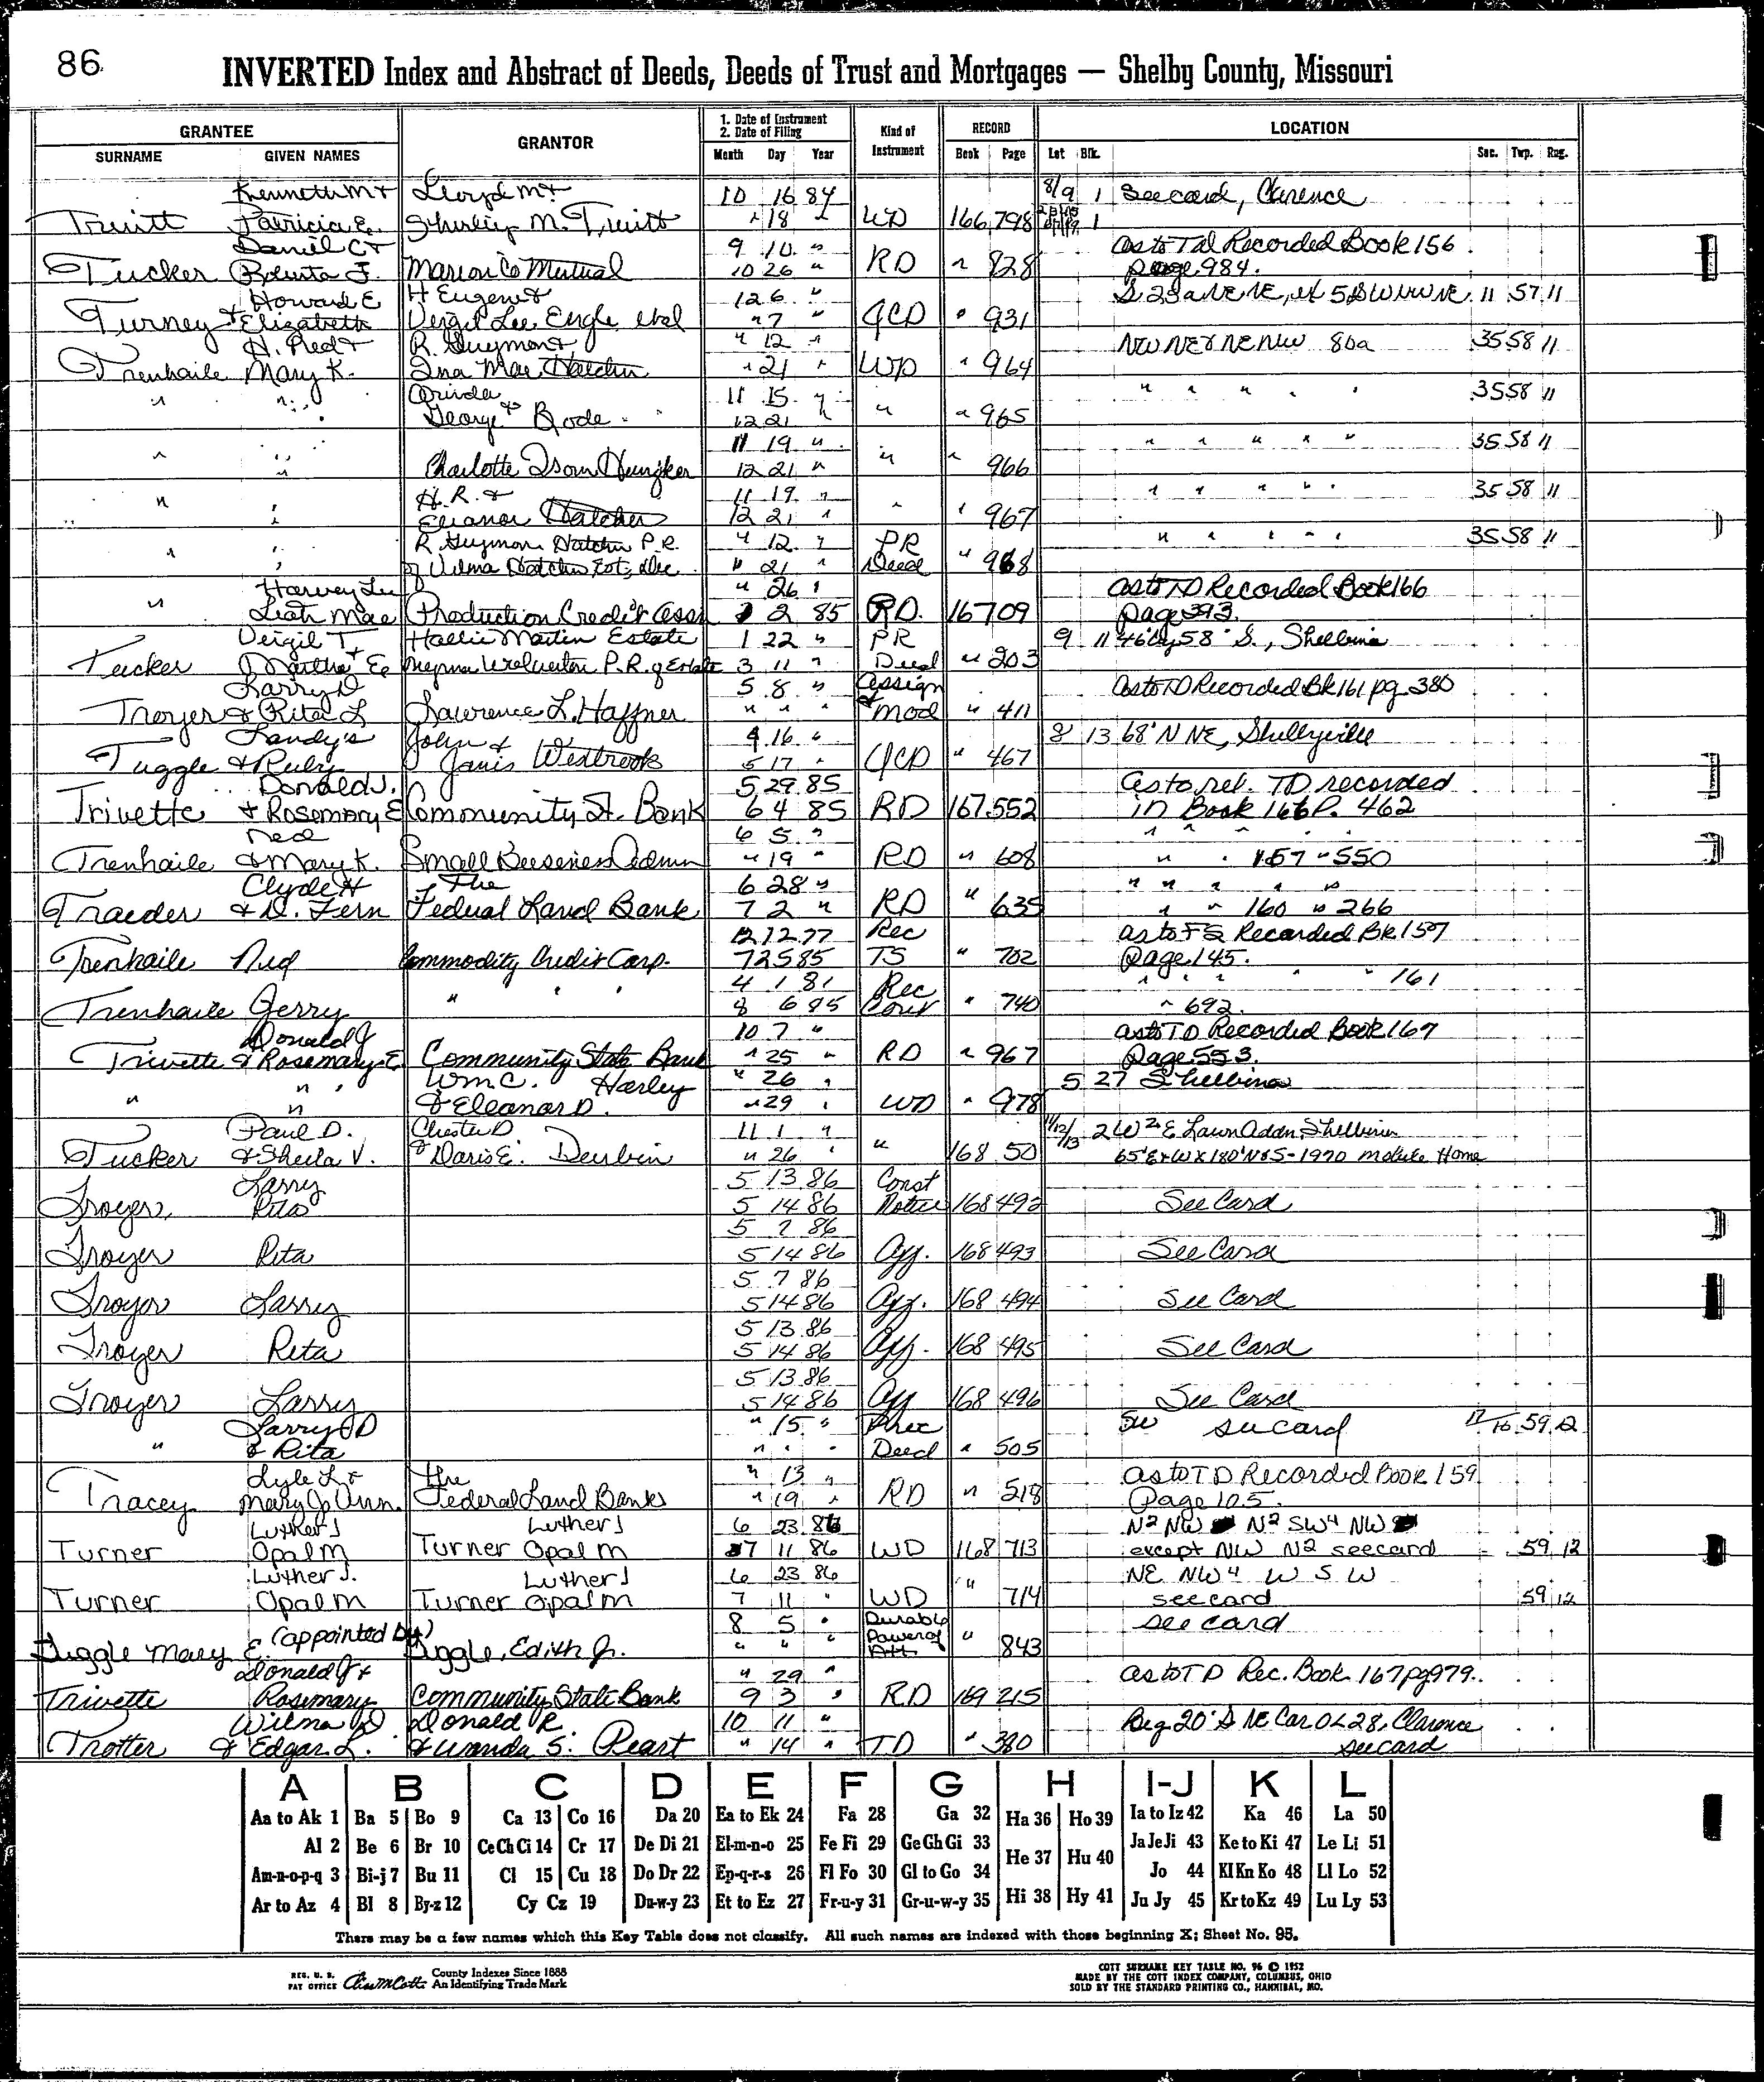 86
INVERTED Index and Abstract of Deeds, Deeds of Trust and Mortgages — Shelby County, Missouri
GRANTEE GRANTOR 1. Date of Instrument 2. Date of Filing Kind of Instrument RECORD LOCATION
SURNAME GIVEN NAMES Month Day Year Book Page Lot Blk. Sec. Twp. Rng.
Kenneth M & Lloyd M & 10 16 84 8/9 1 See card, Clarence
Truitt Patricia E. Shirley M. Truitt " 18 " WD 166 798 1
Daniel C & 9 10 " as to Td Recorded Book 156
Tucker Roberta J. Marion Co Mutual 10 26 " RD " 828 page 984.
Howard E H Eugene & 12 6 " 11 57 11
Turney & Elizabeth Virgil Lee Engle etal " 7 " QCD " 931
H. Ned & R. Guymon & " 12 " NW NE & NE NW 80a 35 58 11
Trenhaile Mary K. Ina Mae Hatcher " 21 " WD " 964
" " Orinda 11 15 " " " " " " 35 58 11
George & Rode 12 21 " " " 965
" " 11 19 " " " " " " 35 58 11
" Charlotte Isom Hunziker 12 21 " " " 966
" " H. R. & 11 19 " " " " " " 35 58 11
" Eleanor Hatcher 12 21 " " " 967
" " R. Guymon Hatcher P.R. " 12 " PR " " " " " 35 58 11
" of Velma Hatcher Est, dec " 21 " Deed " 968
Harvey Lee " 26 " as to TD Recorded Book 166
" Leah Mae Production Credit Assn 1 2 85 RD. 167 09 page 393.
Virgil T & Hallie Martin Estate 1 22 " PR 9 11 46' by 58' S., Shelbina
Tucker Martha E. P.R. of Estate 3 11 " Deed " 203
Larry D 5 8 " Assign as to TD Recorded Bk 161 pg 380
Troyer & Rita L Lawrence L. Haffner " " " & Mod " 411
John & 4 16 " 8 13 68' N NE, Shelbyville
Tuggle & Ruby Janis Westbrook 5 17 " QCD " 467
Donald J. 5 29 85 as to rel. TD recorded
Trivette & Rosemary E Community St. Bank 6 4 85 RD 167 552 in Book 166 P. 462
Ned 6 5 " " " " " "
Trenhaile & Mary K. Small Business Admn " 19 " RD " 608 " " 157 " 550
Clyde H The 6 28 " " " " " "
Traeder & D. Fern Federal Land Bank 7 2 " RD " 635 " " 160 " 266
12 12 77 Rec as to FS Recorded Bk 157
Trenhaile Ned Commodity Credit Corp. 7 25 85 TS " 702 page 145.
4 1 81 Rec " " " " " 161
Trenhaile Jerry " " " 8 6 85 Cont " 740 " 692.
Donald J 10 7 " as to TD Recorded Book 167
Trivette & Rosemary E Community State Bank " 25 " RD " 967 page 553.
" " Wm C. Harley " 26 " 5 27 Shelbina
" & Eleanor D. " 29 " WD " 978
Paul D. Chester D 11 1 " 11/12/13 2 W2 E Lawn Addn, Shelbina
Tucker & Sheila V. & Doris E. Durbin " 26 " " 168 50 65' E&W X 180' N&S - 1970 Mobile Home
Larry 5 13 86 Const
Troyer, Rita 5 14 86 Notice 168 492 See Card
5 7 86
Troyer Rita 5 14 86 Aff. 168 493 See Card
5 7 86
Troyer Larry 5 14 86 Aff. 168 494 See Card
5 13 86
Troyer Rita 5 14 86 Aff. 168 495 See Card
5 13 86
Troyer Larry 5 14 86 Aff 168 496 See Card
Larry D " 15 " SW see card 59 12
" & Rita " " " Deed " 505
Lyle L & The " 13 " as to TD Recorded Book 159
Tracey Mary Jo Ann. Federal Land Banks " 19 " RD " 518 Page 105.
Luther J Luther J 6 23 86 N2 NW N2 SW4 NW
Turner Opal M Turner Opal M 7 11 86 WD 168 713 except NW N2 see card 59 12
Luther J. Luther J 6 23 86 NE NW4 W S W
Turner Opal M Turner Opal M 7 11 " WD " 714 see card 59 12
(appointed by) 8 5 " Durable see card
Tuggle Mary E. Tuggle, Edith Jr. " " " Power of Att " 843
Donald J & " 29 " as to TD Rec. Book 167 pg 979.
Trivette Rosemary Community State Bank 9 3 " RD 169 215
Wilma D Donald R. 10 11 " Beg 20' S NE Cor OL 28, Clarence
Trotter & Edgar L. & Wanda S. Peart " 14 " TD " 380 see card
A B C D E F G H I-J K L
Aa to Ak 1 Ba 5 Bo 9 Ca 13 Co 16 Da 20 Ea to Ek 24 Fa 28 Ga 32 Ha 36 Ho 39 Ia to Iz 42 Ka 46 La 50
Al 2 Be 6 Br 10 Ce Ch Ci 14 Cr 17 De Di 21 El-m-n-o 25 Fe Fi 29 Ge Gh Gi 33 He 37 Hu 40 Ja Je Ji 43 Ke to Ki 47 Le Li 51
Am-n-o-p-q 3 Bi-j 7 Bu 11 Cl 15 Cu 18 Do Dr 22 Ep-q-r-s 26 Fl Fo 30 Gl to Go 34 Jo 44 Kl Kn Ko 48 Ll Lo 52
Ar to Az 4 Bl 8 By-z 12 Cy Cz 19 Du-w-y 23 Et to Ez 27 Fr-u-y 31 Gr-u-w-y 35 Hi 38 Hy 41 Ju Jy 45 Kr to Kz 49 Lu Ly 53
There may be a few names which this Key Table does not classify. All such names are indexed with those beginning X; Sheet No. 95.
REG. U. S. PAT OFFICE County Indexes Since 1888 An Identifying Trade Mark
COTT SURNAME KEY TABLE NO. 96 © 1952
MADE BY THE COTT INDEX COMPANY, COLUMBUS, OHIO
SOLD BY THE STANDARD PRINTING CO., HANNIBAL, MO.